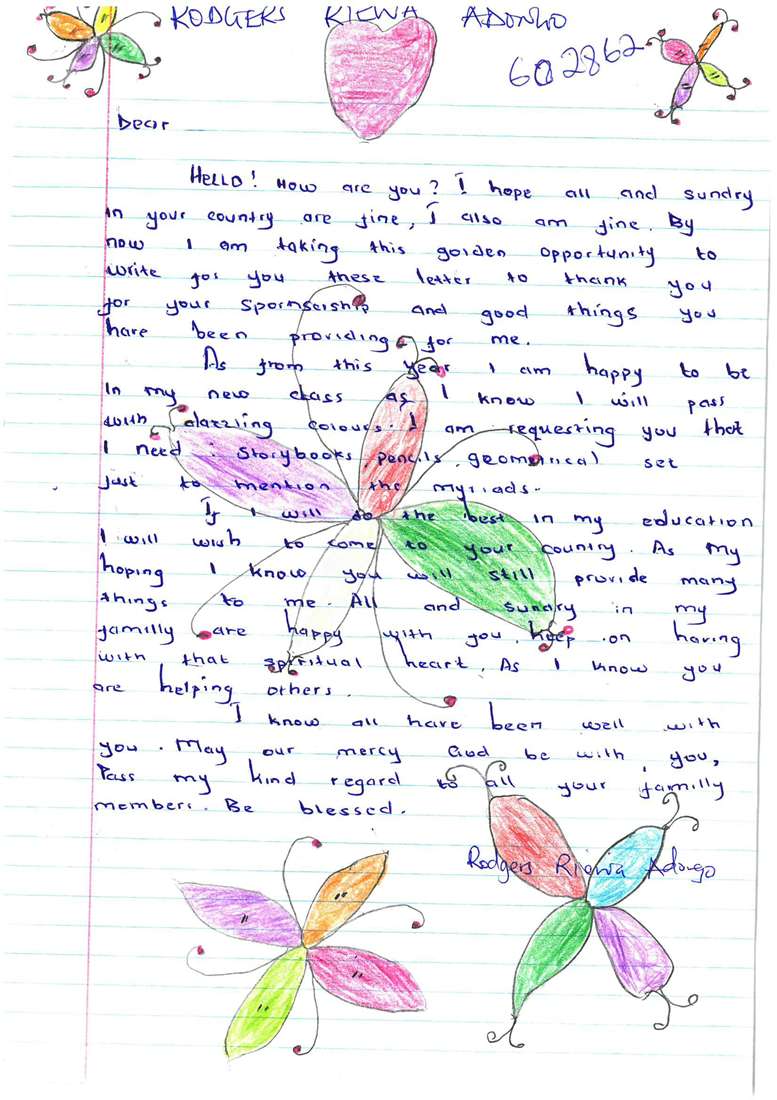 RODGERS RIEWA ADONGO
602862
Dear
HELLO! How are you? I hope all and sundry
in your country are fine, I also am fine. By
now I am taking this golden opportunity to
write for you these letter to thank you
for your sponsership and good things you
have been providing for me.
As from this year I am happy to be
In my new class as I know I will pass
with dazzling colours. I am requesting you that
I need : storybooks, pencils, geometrical set
just to mention the myriads.
If I will do the best in my education
I will wish to come to your country. As my
hoping I know you will still provide many
things to me. All and sundry in my
familly are happy with you, keep on having
with that spiritual heart. As I know you
are helping others.
I know all have been well with
you. May our mercy God be with you,
Pass my kind regard to all your familly
members. Be blessed.
Rodgers Riewa Adongo